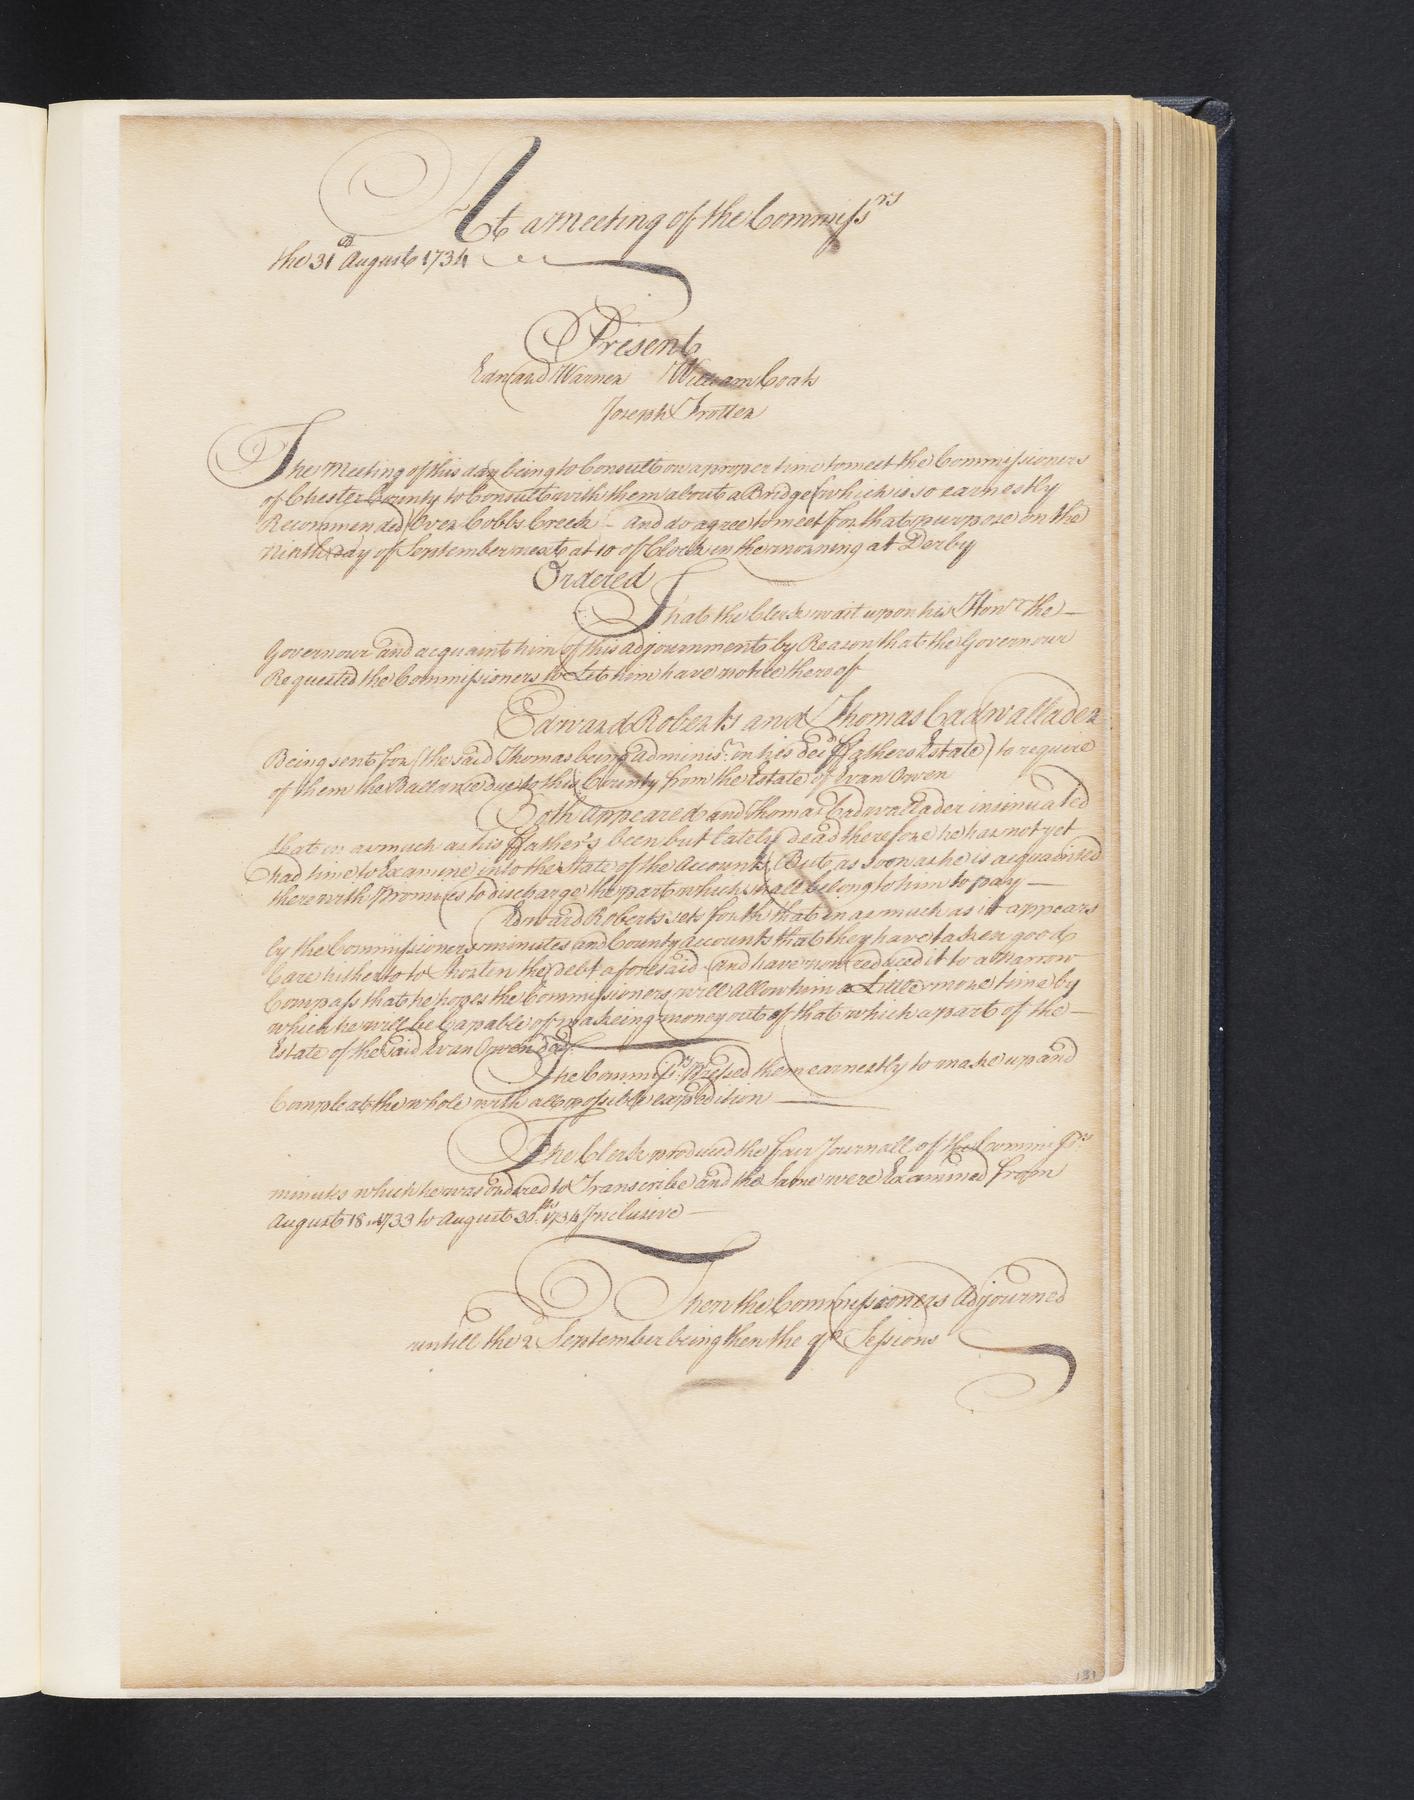 At a meeting of the Commiss.rs
the 31st August 1734
Present
Edward Warner William Coats
Joseph Trotter
The Meeting of this day being to Consult on a proper time to meet the Commissioners
of Chester County to Consult with them about a Bridge (which is so earnestly
Recommended) Over Cobbs Creek – and do agree to meet for that purpose on the
Ninth day of September next at 10 of Clock in the morning at Derby
Ordered
That the Clerk wait upon his Honr. the –
Governour and acquaint him of this adjournment by Reason that the Governour
Requested the Commissioners to Let him have notice thereof
Edward Roberts and Thomas Cadwallader
Being sent for (the said Thomas being Adminisr. on his decd ffathers Estate) to require
of them the Ballance due to this County from the Estate of Evan Owen
Both appeared and Thomas Cadwallader insinuated
that in as much as his ffather's been but lately dead therefore he has not yet
had time to Examine into the State of the Accounts But as soon as he is acquainted
therewith promises to discharge the part which shall belong to him to pay –
Edward Roberts sets forth that in as much as it appears
by the Commissioners minutes and County accounts that they have taken good
Care hitherto to Shorten the debt aforesaid and have now reduced it to a Narrow
Compass that he hopes the Commissioners will allow him a Little more time by
which he will be Capable of makeing money out of that which a part of the –
Estate of the said Evan Owen decd.
The Commissrs. Pressed them earnestly to make up and
Compleat the whole with all possible expedition –
The Clerk produced the fair Journall of the Commissrs.
minutes which he was ordered to Transcribe and the Same were Examined from
August 18. 1733 to August 30th. 1734 Inclusive –
Then the Commissioners Adjourned
untill the 2d September being then the qr. Sessions
131